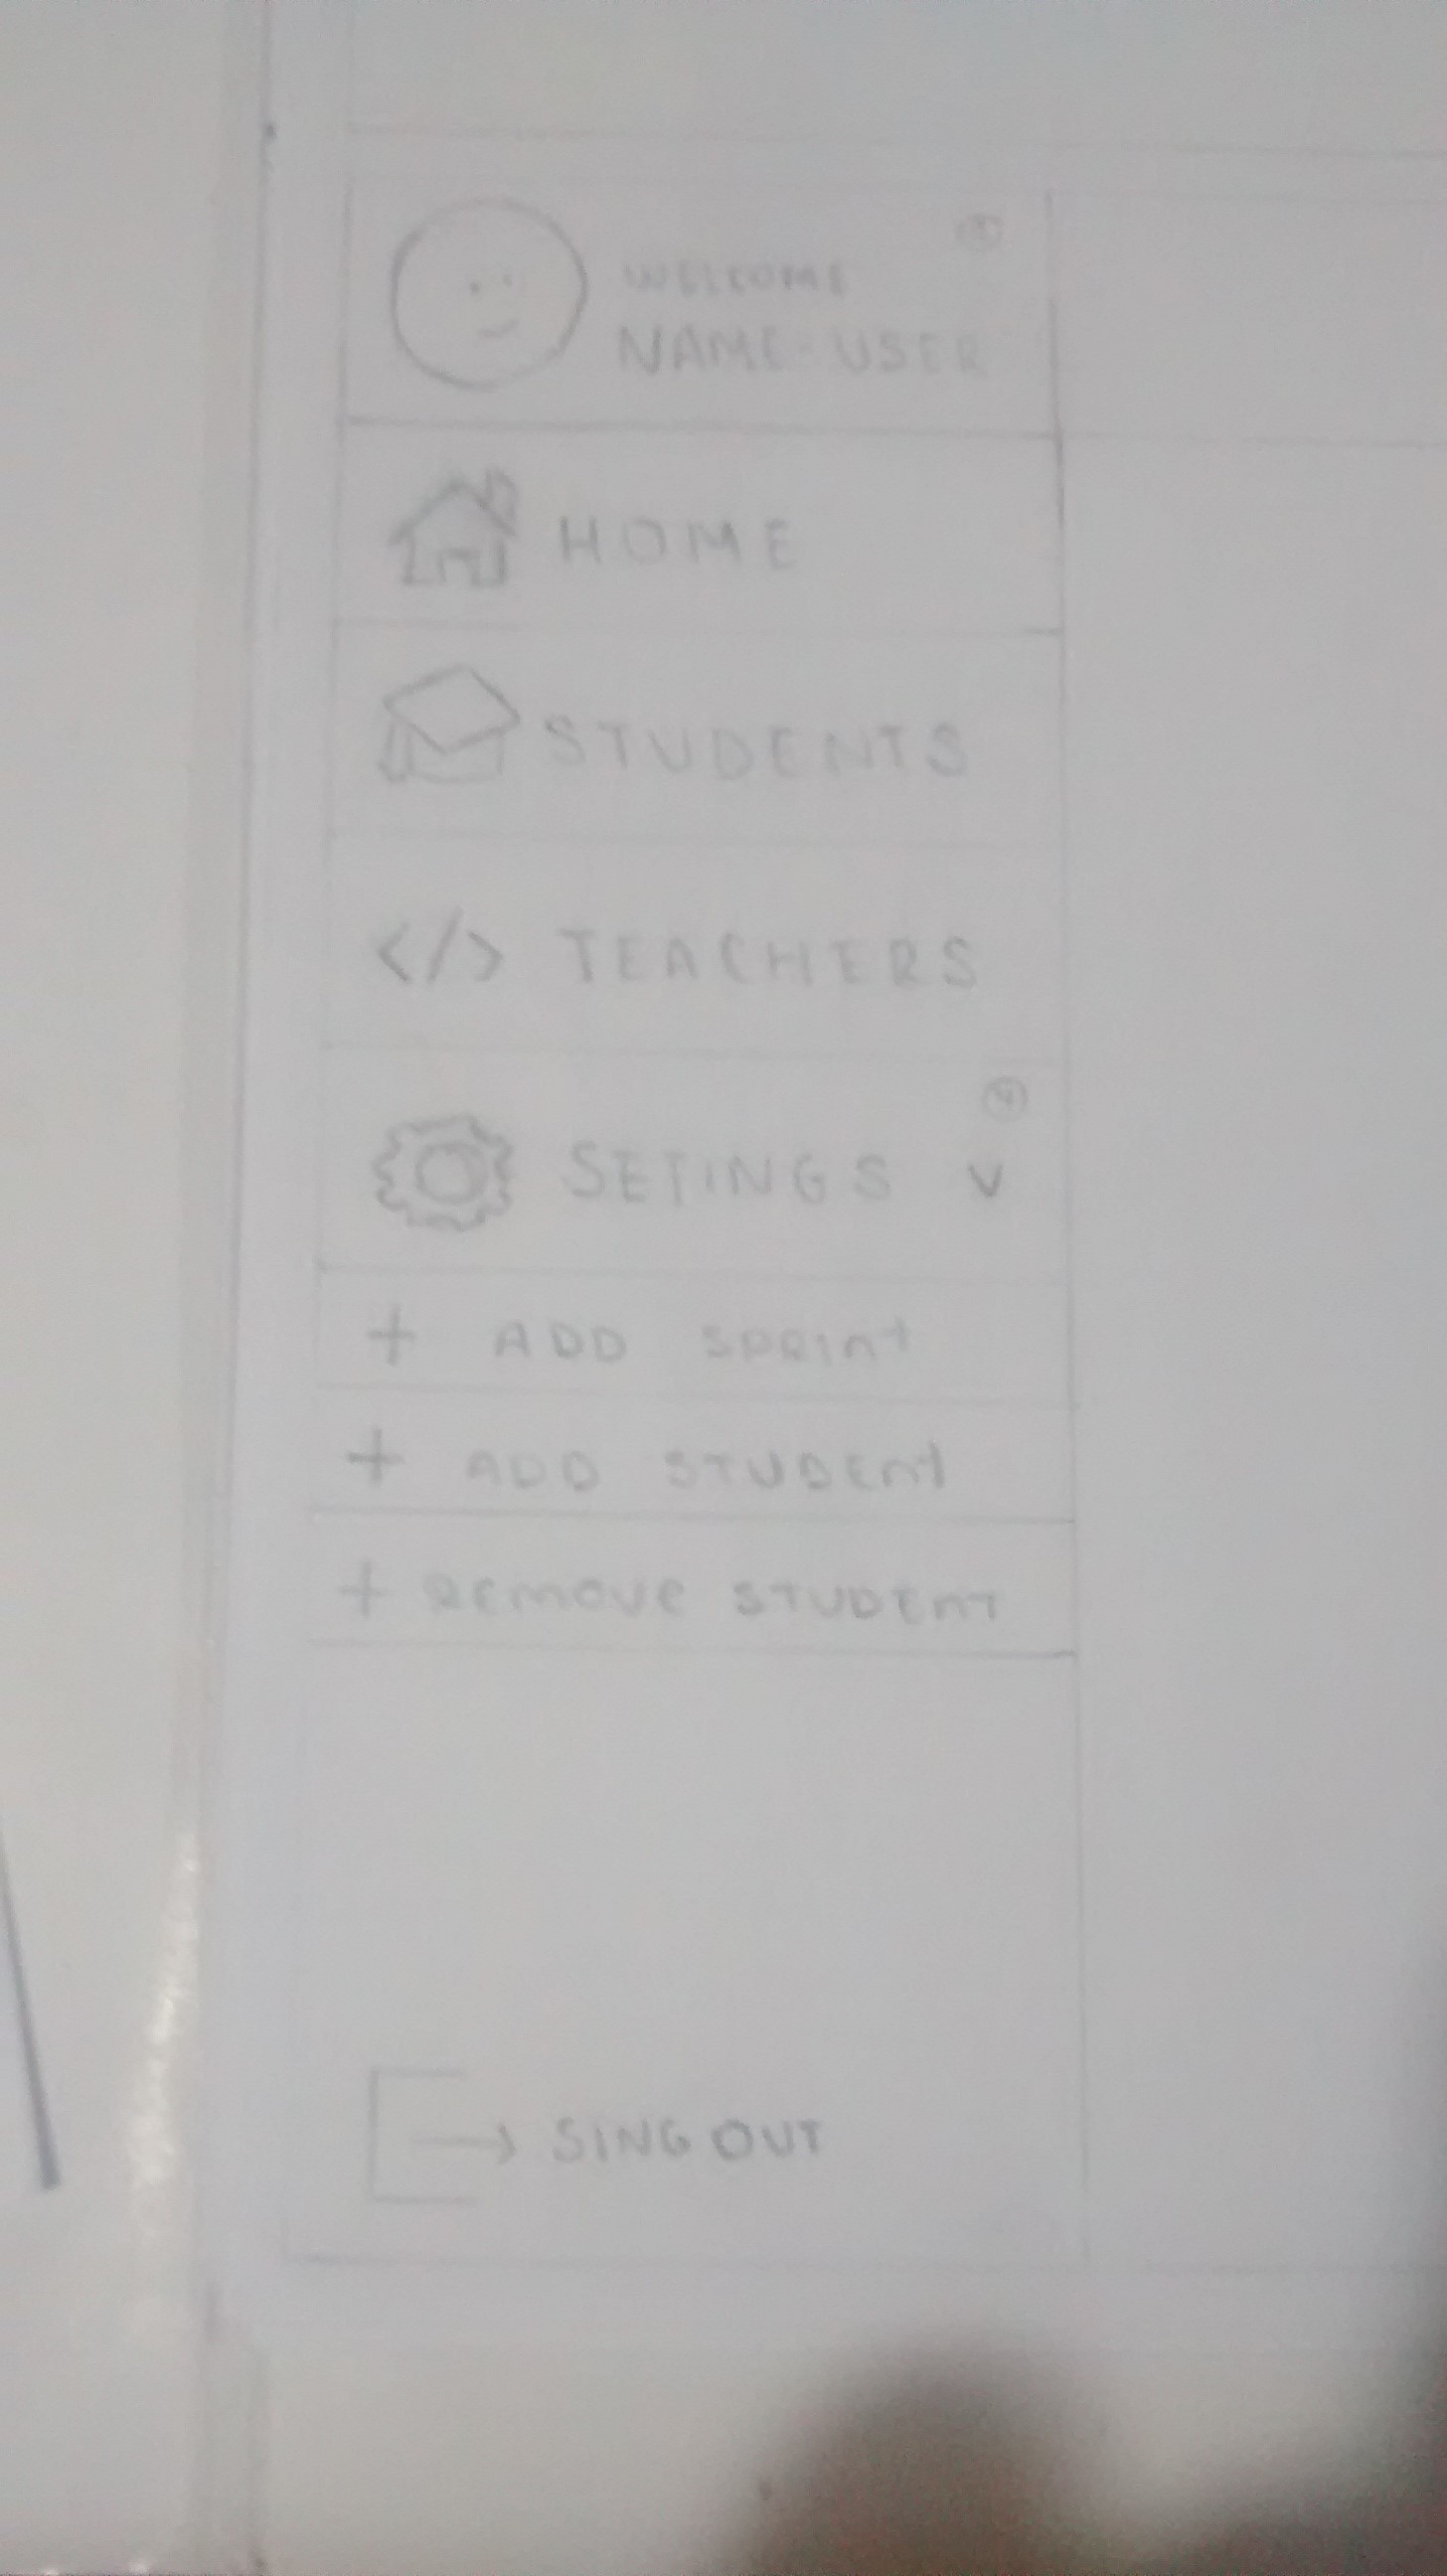 WELCOME
NAME-USER
HOME
STUDENTS
</> TEACHERS
SETINGS V
+ ADD SPRINT
+ ADD STUDENT
+ REMOVE STUDENT
SING OUT